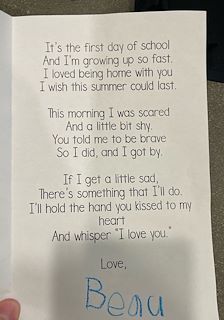 It's the first day of school
And I'm growing up so fast.
I loved being home with you
I wish this summer could last.
This morning I was scared
And a little bit shy.
You told me to be brave
So I did, and I got by.
If I get a little sad,
There's something that I'll do.
I'll hold the hand you kissed to my
heart
And whisper "I love you."
Love,
Beau